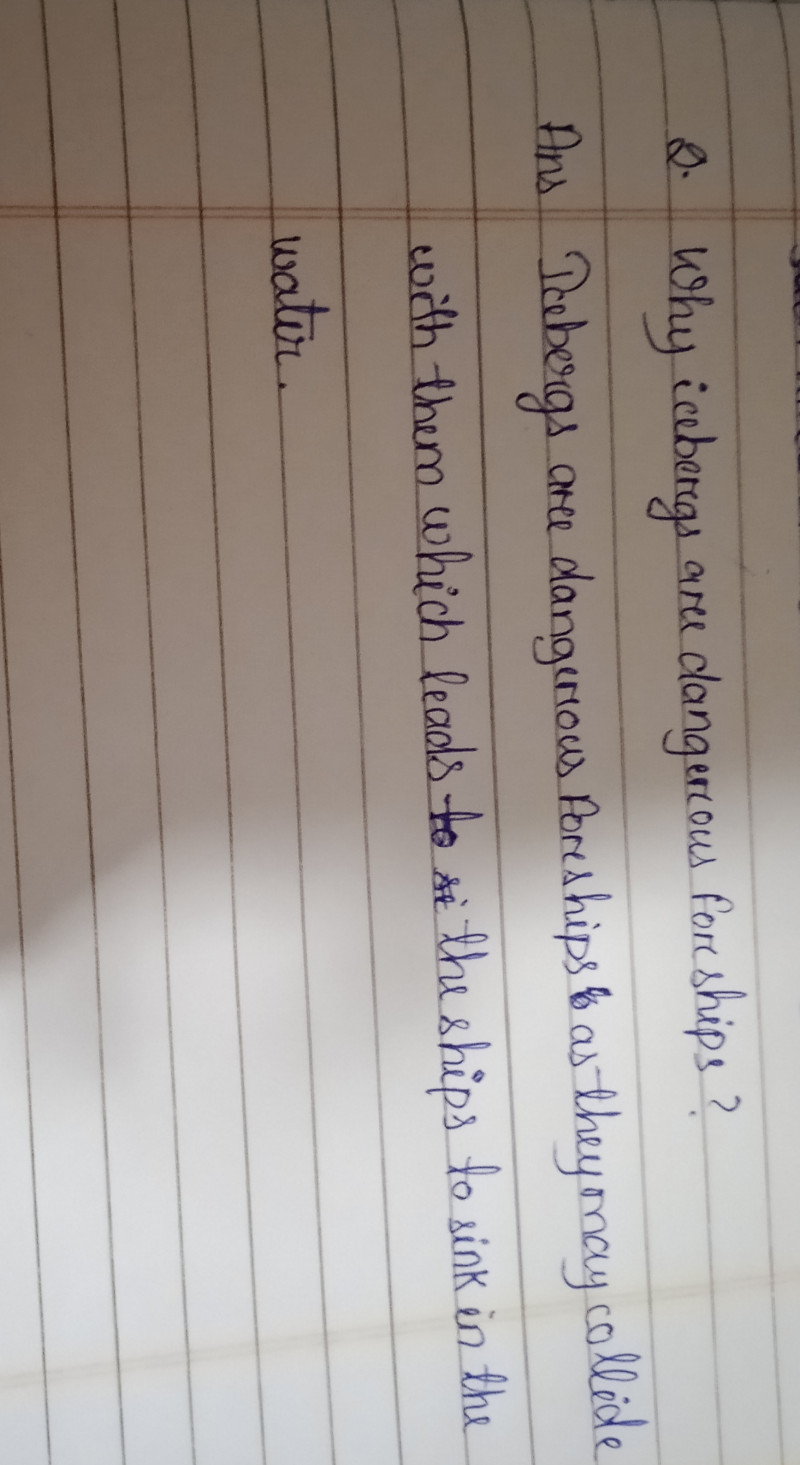 Q. Why icebergs are dangerous for ships?
Ans Icebergs are dangerous for ships as they may collide
with them which leads to si the ships to sink in the
water.